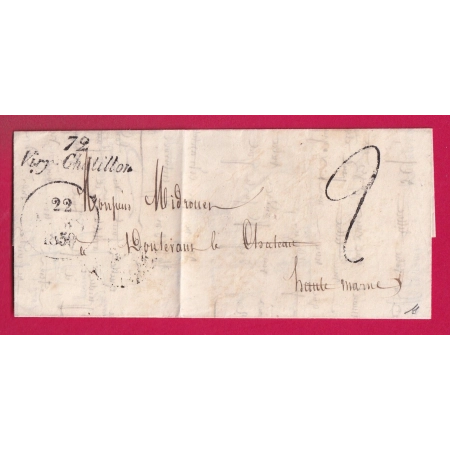 72
Viry-Chatillon
22
1850
Monsieur Midrouet
à Doulevant le Chateau
haute marne
2